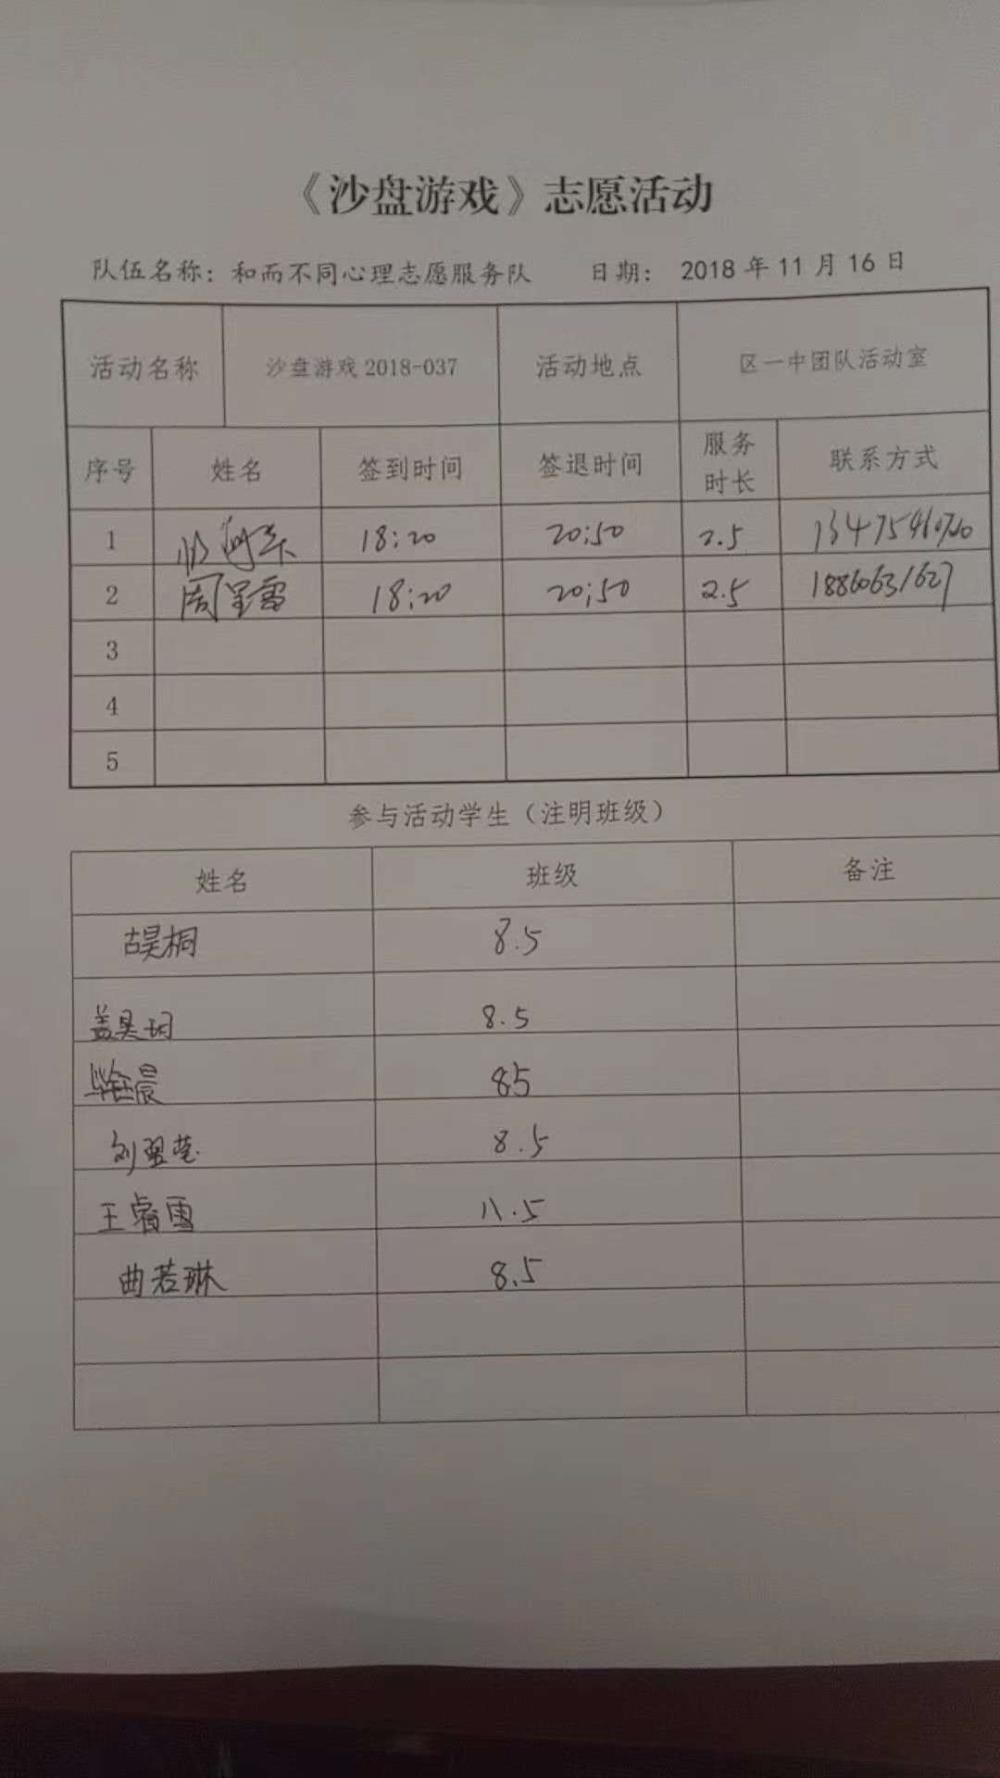 《沙盘游戏》志愿活动
队伍名称：和而不同心理志愿服务队 日期： 2018 年 11 月 16 日
活动名称 沙盘游戏 2018-037 活动地点 区一中团队活动室
序号 姓名 签到时间 签退时间 服务时长 联系方式
1 18:20 20:50 2.5
2 周 18:20 20;50 2.5 18860631627
3
4
5
参与活动学生（注明班级）
姓名 班级 备注
古昊桐 8.5
盖昊 8.5
晨 85
刘翌莹 8.5
王睿雪 八.5
曲若琳 8.5